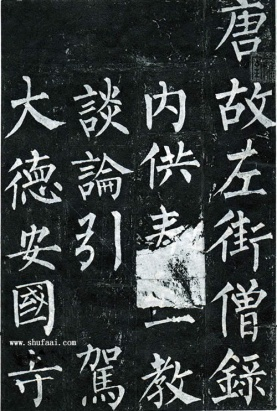 唐故左街僧錄
内供奉三教
談論引駕
大德安國寺
www.shufaai.com